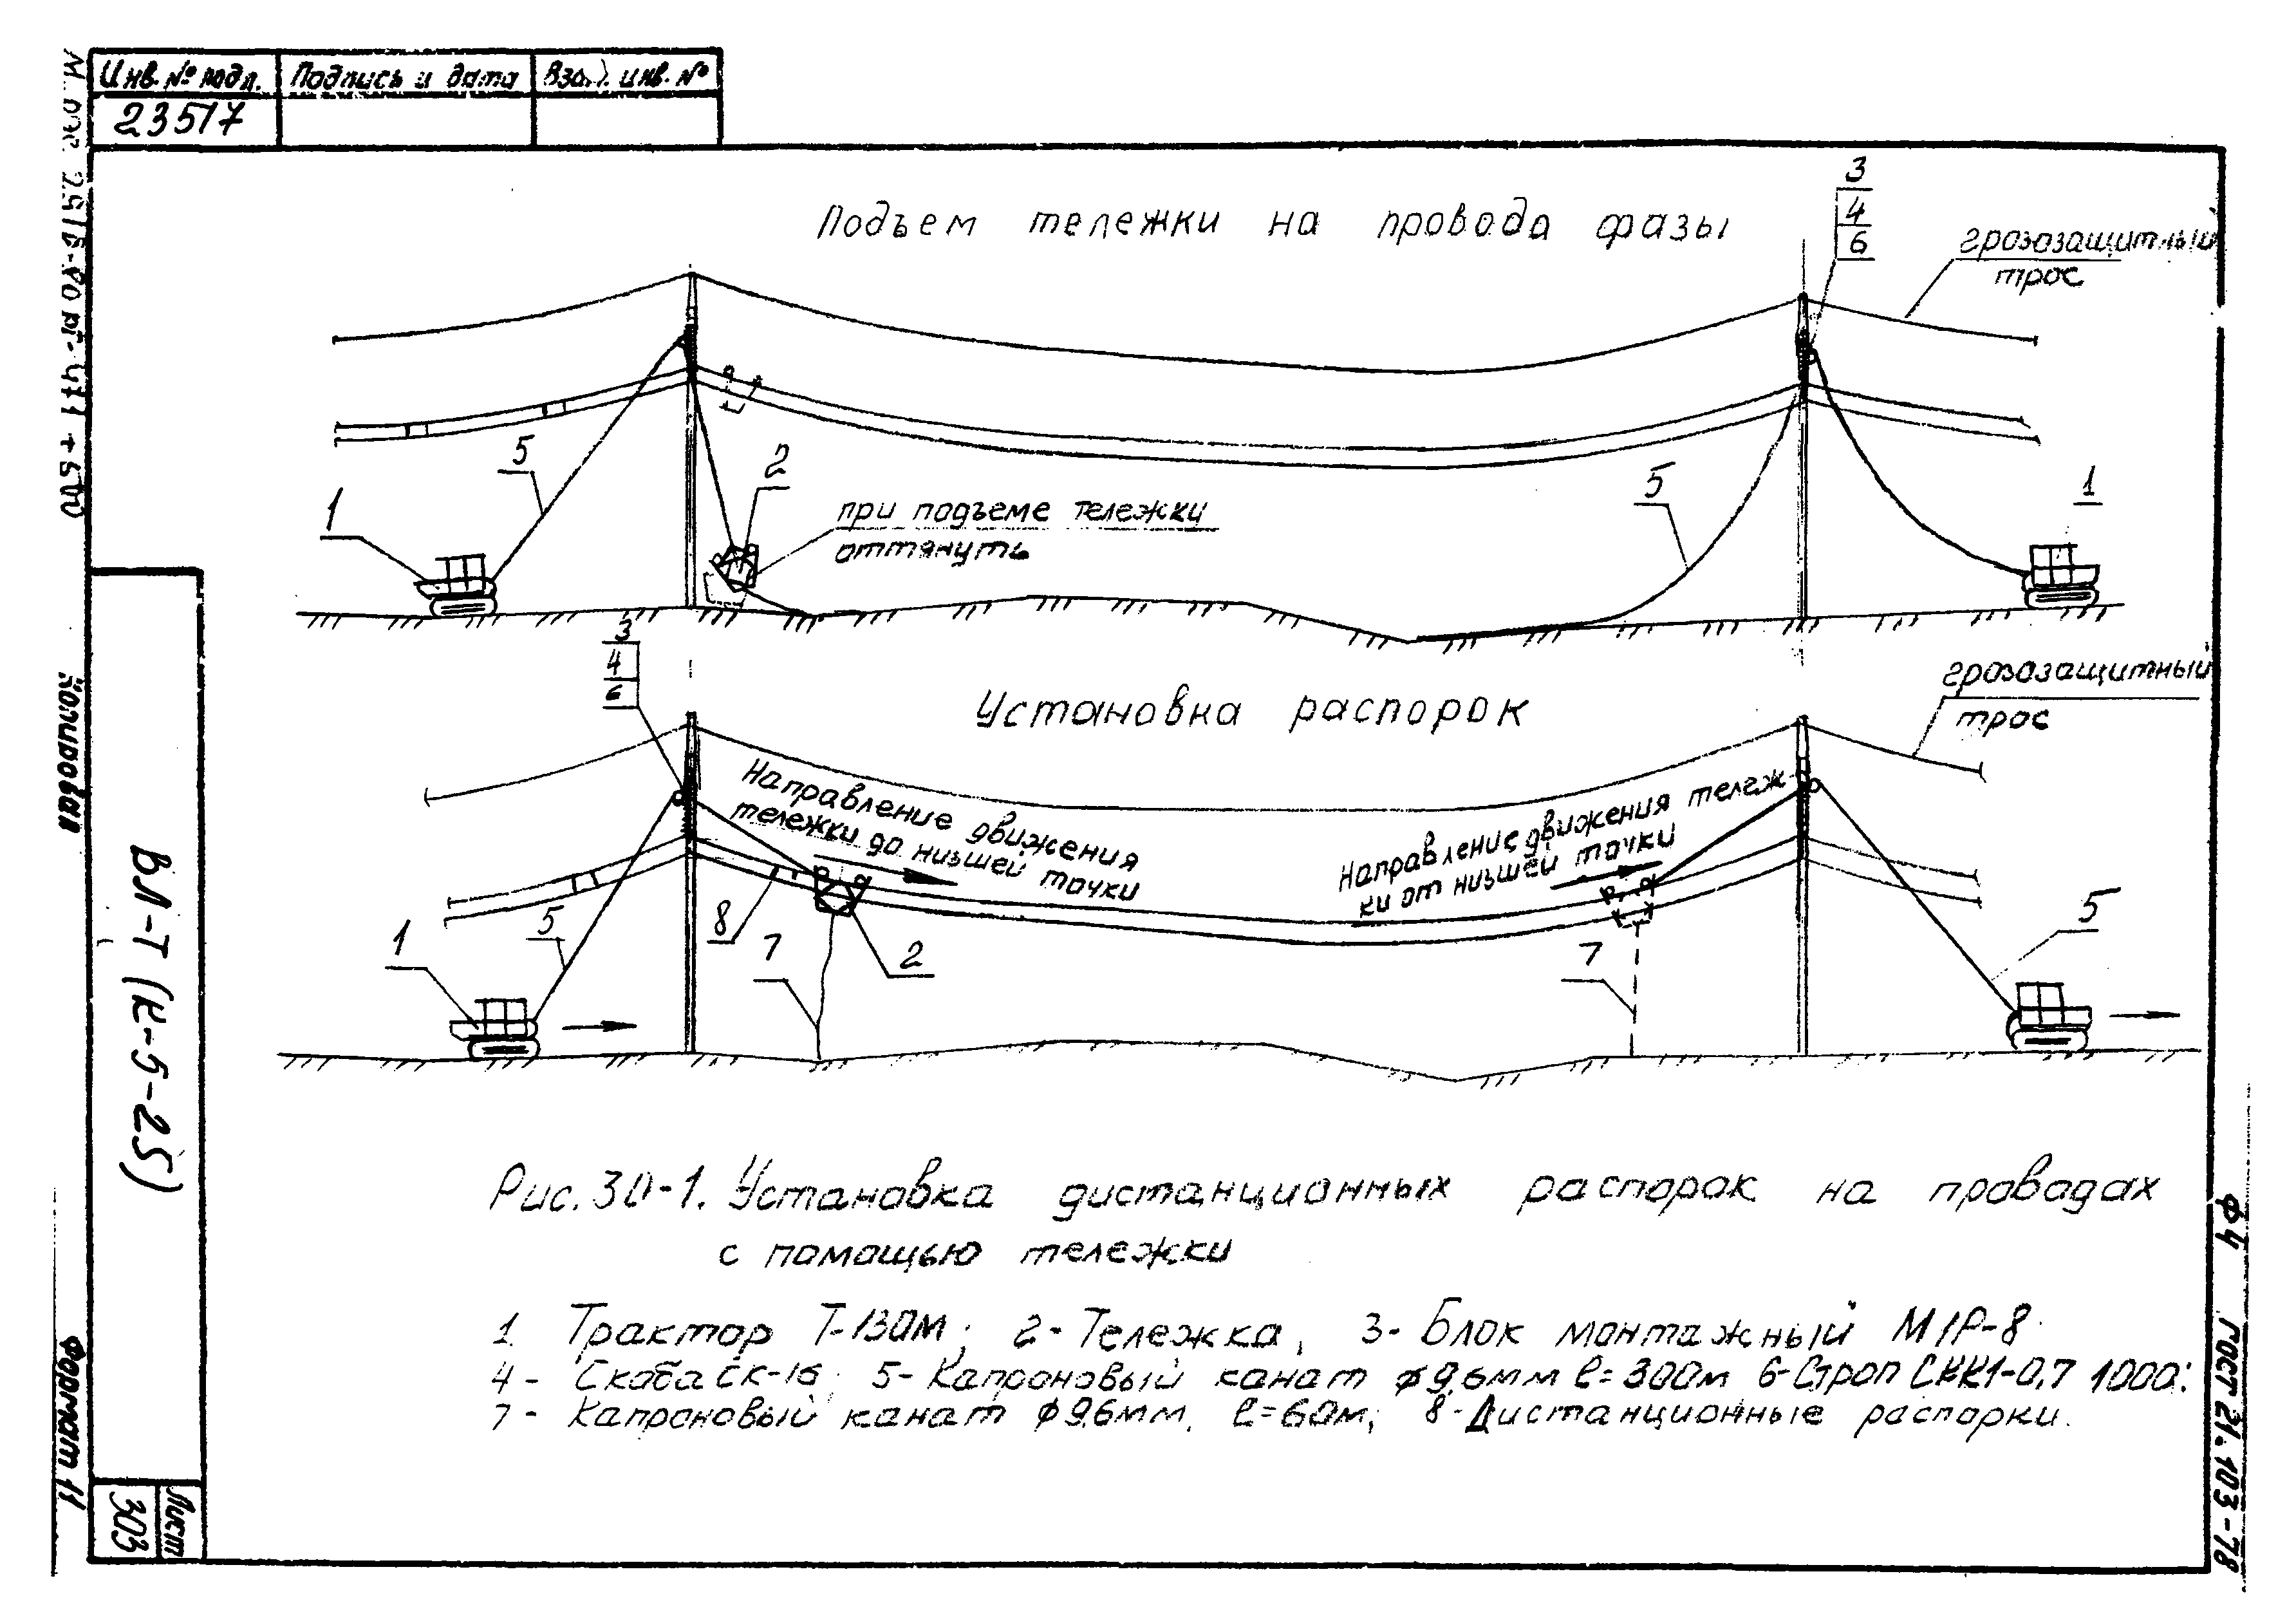 Инв. № подл.
Подпись и дата
инв. №
23517
Подъем тележки на провода фазы
3
4
6
грозозащитный
трос
5
2
1
при подъеме тележки
оттянуть
5
1
3
4
6
Установка распорок
грозозащитный
трос
Направление движения
тележки до низшей точки
Направление движения тележ-
ки от низшей точки
1
5
8
7
2
7
5
Рис. 30-1. Установка дистанционных распорок на проводах
с помощью тележки
1 Трактор Т-130м; 2- Тележка, 3- Блок монтажный М1Р-8
4- Скоба СК-16; 5- Капроновый канат ф9,6мм ℓ=300м 6-Строп СКК1-0,7 1000;
7- Капроновый канат ф9.6мм. ℓ=60м; 8-Дистанционные распорки.
ВЛ-Т (К-5-25)
Лист
303
Копировал
Формат 11
Ф4 ГОСТ 21.103-78